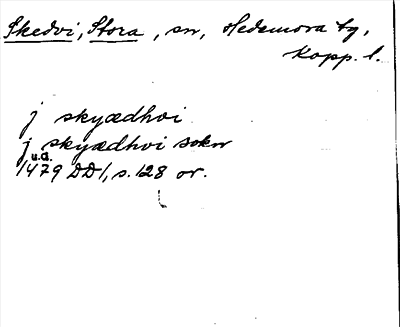 Skedvi, Stora, sn, Hedemora tg,
Kopp. l.
j skyædhvi
j skyædhvi sokn
u.a.
1479 DD 1, s. 128 or.